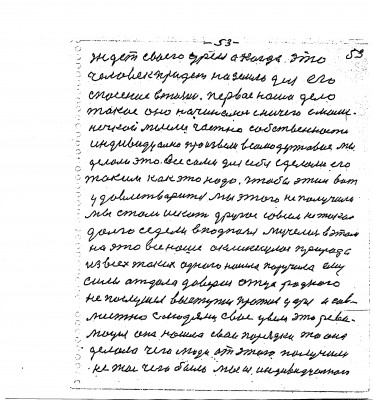 - 53 -
53
ждет своего время а когда это
человек придет на землю для его
спасение в жизни. первое наше дело
такое оно начиналось с ничего с маши-
нечкой мысли. частно собственность
индивидуално произвели всамодуховное мы
делали это. Все сами для себя сделали его
таким как это надо. чтобы этим вот
удовлетворится мы этого не получили
мы стали искать другое совсем не такое
долго сидели в подполи мучелись в этом
на это все наше откликнулося природа
из всех таких одного нашла поручила ему
силы отдала доверия отца родного
не послушал выступил против царя и сов-
местно с людями свое увел это рево-
люция она нашла свои порядки то она
делала чего люди от этого получили
не то чего было мы и индивидуалного